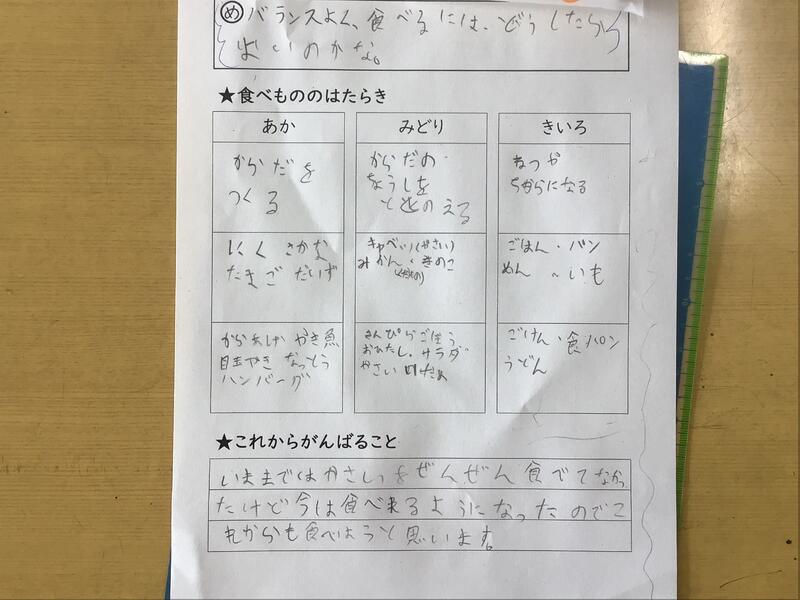 め バランスよく、食べるには、どうしたら
よいのかな。
★食べもののはたらき
あか
みどり
きいろ
からだを
つくる
からだの
ちょうしを
ととのえる
ねつや
ちからになる
にく さかな
たまご だいず
キャベツ(やさい)
みかん・きのこ
(くだもの)
ごはん・パン
めん・いも
からあげ やき魚
目玉やき なっとう
ハンバーグ
きんぴらごぼう
おひたし、サラダ
やさい
ごはん・食パン
うどん
★これからがんばること
いままではやさいをぜんぜん食べてなかっ
たけど今は食べ来るようになったのでこ
れからも食べようと思います。